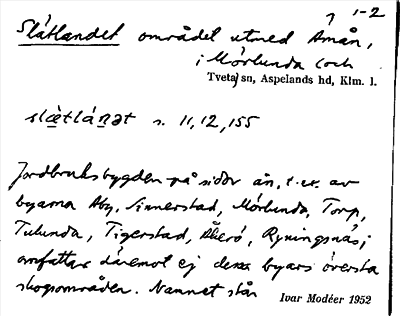 1-2
Slätlandet området utmed Emån,
i Mörlunda (och
Tveta) sn, Aspelands hd, Klm. l.
slæ̀tláṉət n. 11, 12, 155
Jordbruksbygden på sidor ån, t.ex. av
byarna Aby, Sinnerstad, Mörlunda, Torp,
Tulunda, Tigerstad, Åkerö, Ryningsnäs;
omfattar däremot ej dessa byars översta
skogsområden. Namnet står
Ivar Modéer 1952